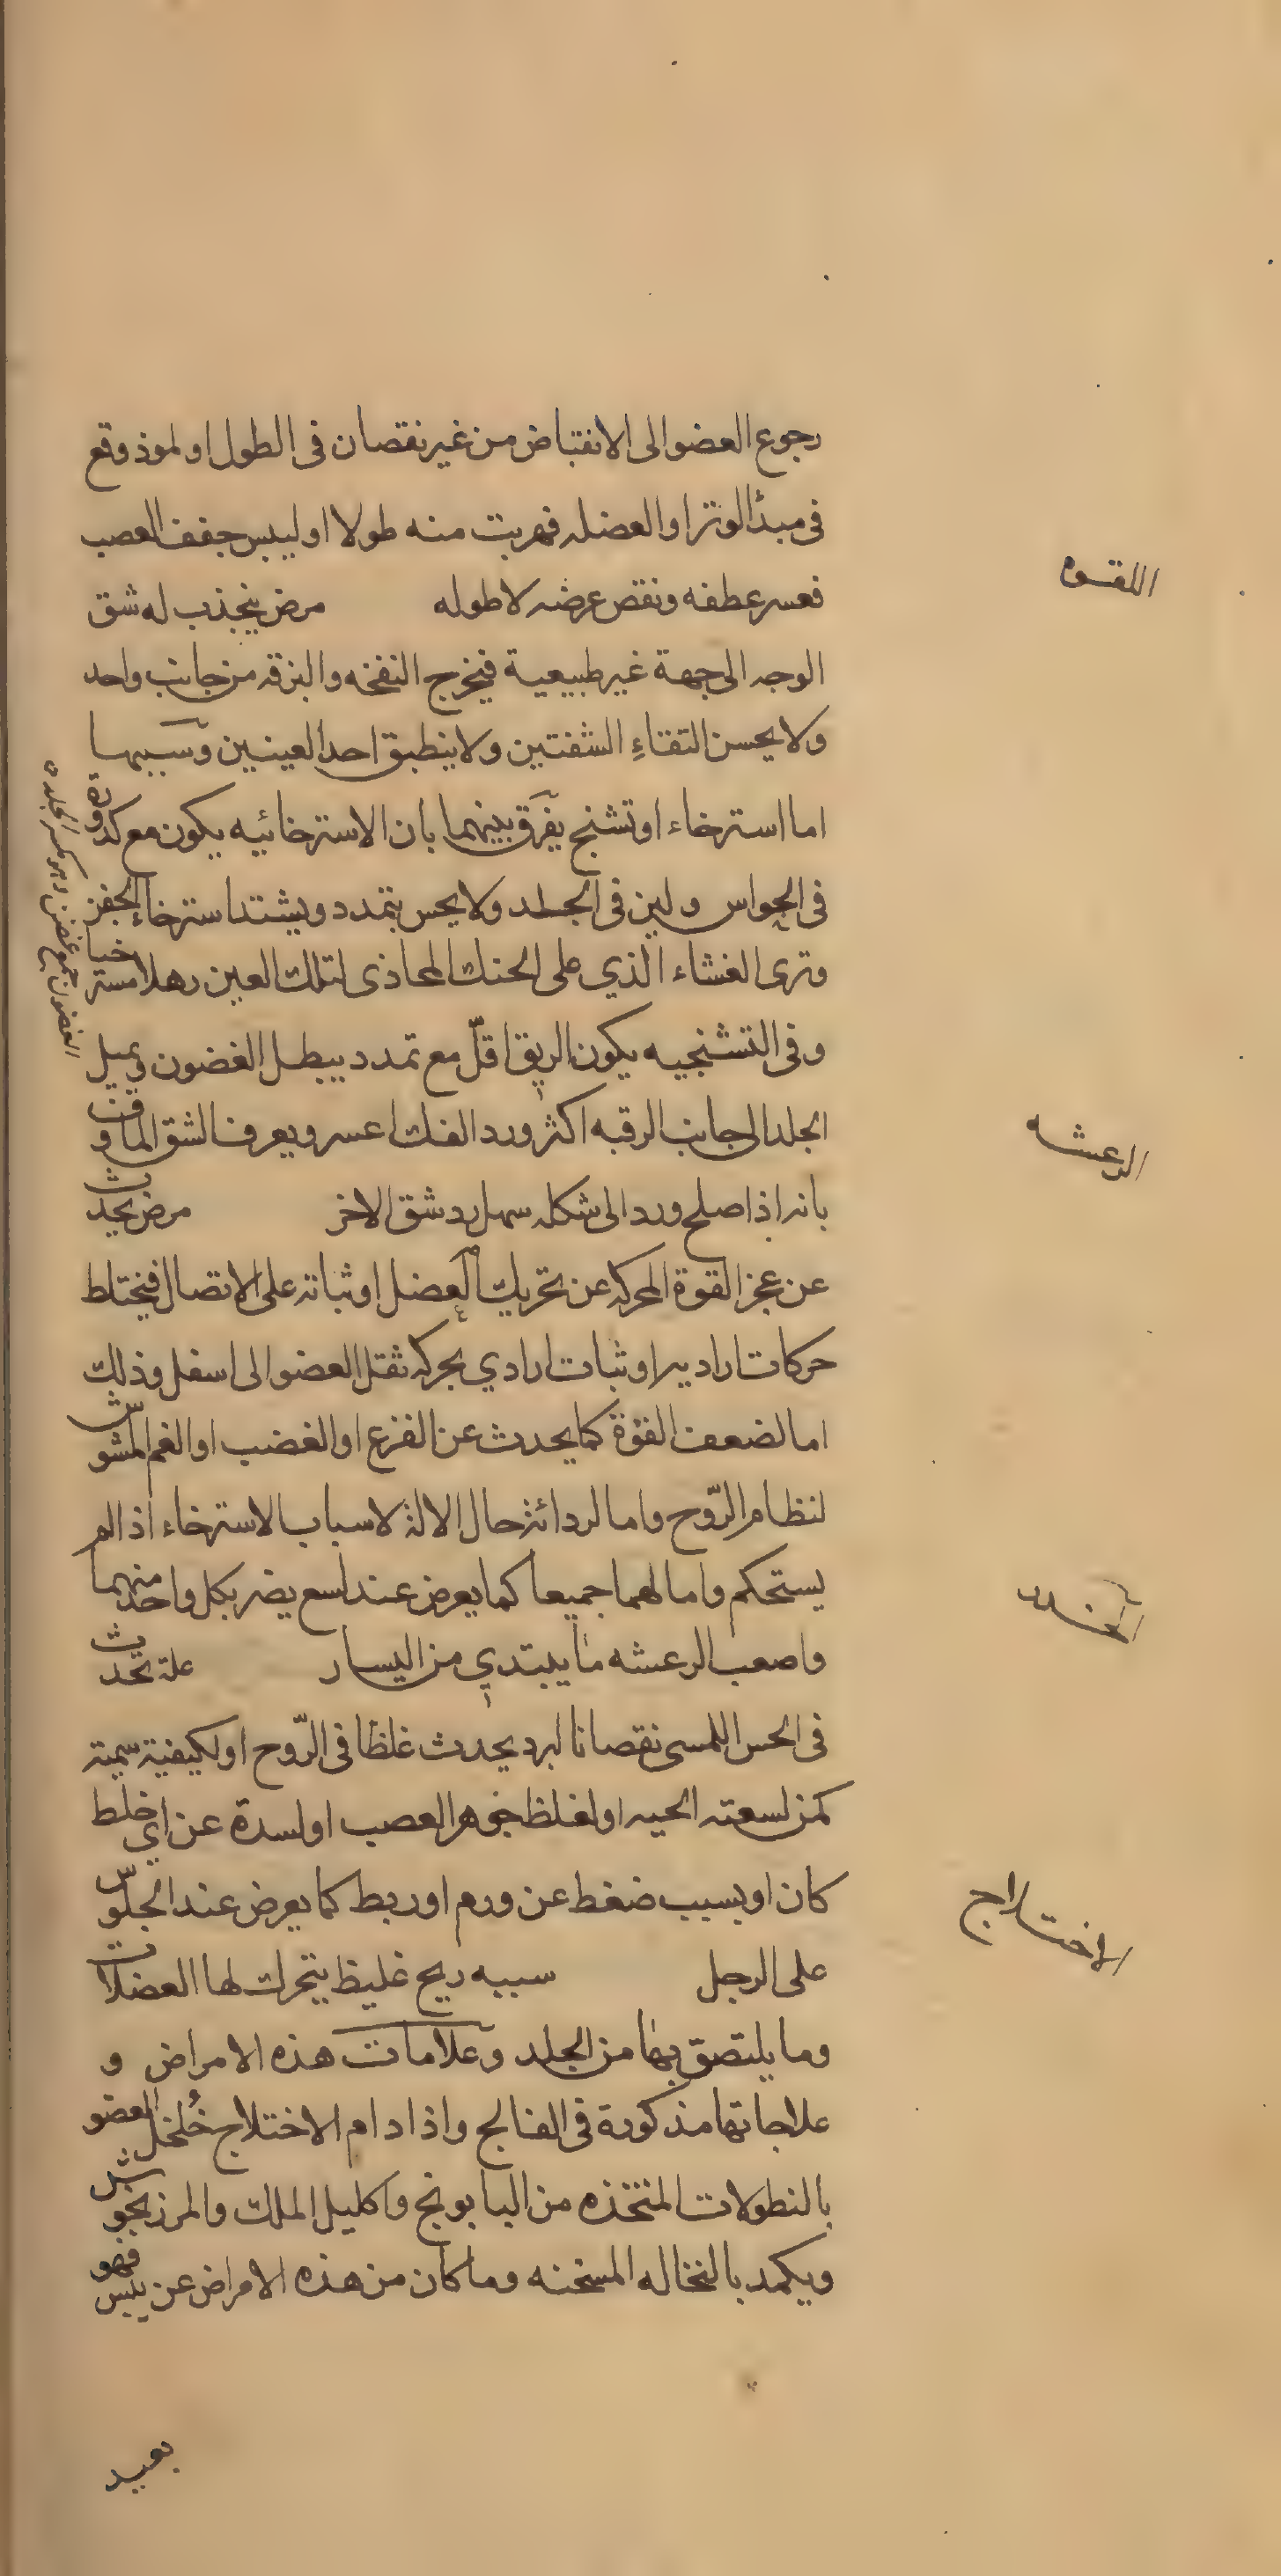 رجوع العضو الى الانقباض من غير نقصان فى الطول او لموذ وقع
فى مبدأ الوتر او العضله فهربت منه طولا او ليبس جفف العصب
اللقوه
فعسر عطفه ونقص عرضه لا طوله مرض ينجذب له شق
الوجه الى جهة غير طبيعية فيخرج النفخه والبزقه من جانب واحد
ولا يحسن التقاءِ الشفتين ولا ينطبق احد العينين وسببها
اما استرخاء او تشنج يفرق بينهما بان الاسترخائيه يكون مع كدورة
فى الحواس ولين فى الجلد ولا يحس بتمدد ويشتد استرخاء الجفن
وترى الغشاء الذي على الحنك المحاذى لتلك العين رهلا مسترخيا
الغضون جمع غضن وهو مكسر الجلد
وفى التشنجيه يكون الريق اقلّ مع تمدد يبطل الغضون ويميل
الجلد الى جانب الرقبه اكثر ورد الفك اعسر ويعرف الشق الماوف
الرعشه
بانه اذا صلح ورد الى شكله سهل رد شق الاخر مرض يحدث
عن عجز القوة المحركه عن تحريك العضل او ثباته على الاتصال فيختلط
حركات اراديه او ثبات ارادي بحركه ثقل العضو الى اسفل وذلك
اما لضعف القوة كما يحدث عن الفزع او الغضب او الغم المشوش
لنظام الرّوح واما لردائة حال الالة لاسباب الاسترخاء اذا لم
يستحكم واما لهما جميعا كما يعرض عند لسع يضر بكل واحد منهما
الخدر
واصعب الرعشه ما يبتدي من اليسار علة تحدث
فى الحس اللمسى نقصانا لبرد يحدث غلظا فى الرّوح او لكيفية سمية
كمن لسعته الحيه او لغلظ جوهر العصب او لسدة عن اي خلط
كان او بسبب ضغط عن ورم او ربط كما يعرض عند الجلوس
الاختلاج
على الرجل سببه ريح غليظ يتحرك لها العضلات
وما يلتصق بها من الجلد وعلامات هذه الامراض و
علاجاتها مذكورة فى الفالج واذا دام الاختلاج خُلخل العضو
بالنطولات المتخذه من البابونج واكليل الملك والمرزنجوش
ويكمد بالنخاله المسخنه وما كان من هذه الامراض عن يبس فهو
بعيد